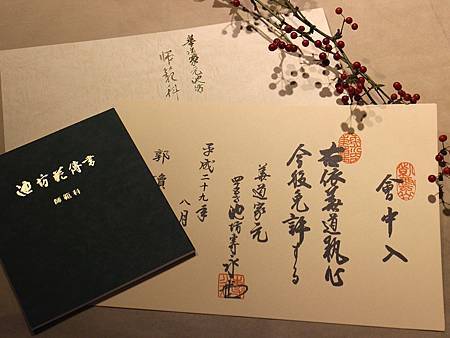 華道家元池坊
師範科
會中入
右依華道執心
今後免許する
華道家元
四十五世池坊専永
平成二十九年
八月
郭
池坊花傳書
師範科